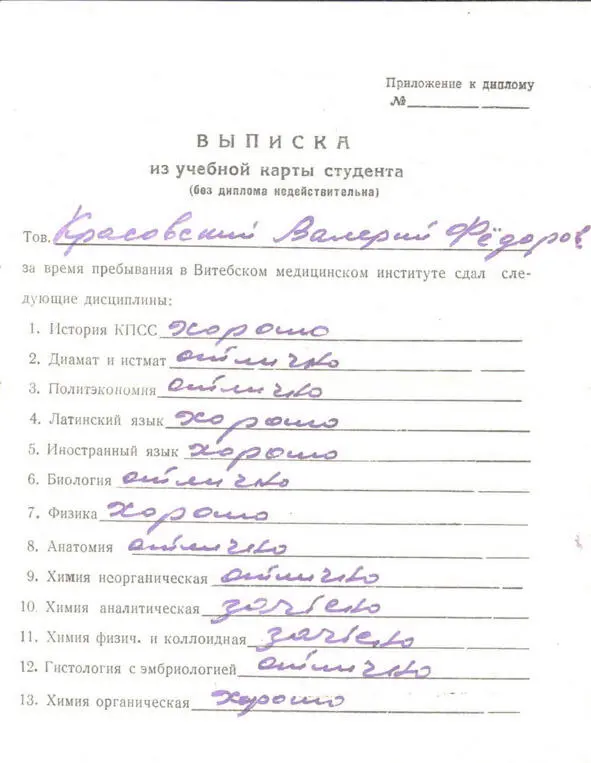 Приложение к диплому
№
ВЫПИСКА
из учебной карты студента
(без диплома недействительна)
Тов. Красовский Валерий Фёдоров
за время пребывания в Витебском медицинском институте сдал сле-
дующие дисциплины:
1. История КПСС хорошо
2. Диамат и истмат отлично
3. Политэкономия отлично
4. Латинский язык хорошо
5. Иностранный язык хорошо
6. Биология отлично
7. Физика хорошо
8. Анатомия отлично
9. Химия неорганическая отлично
10. Химия аналитическая зачтено
11. Химия физич. и коллоидная зачтено
12. Гистология с эмбриологией отлично
13. Химия органическая хорошо